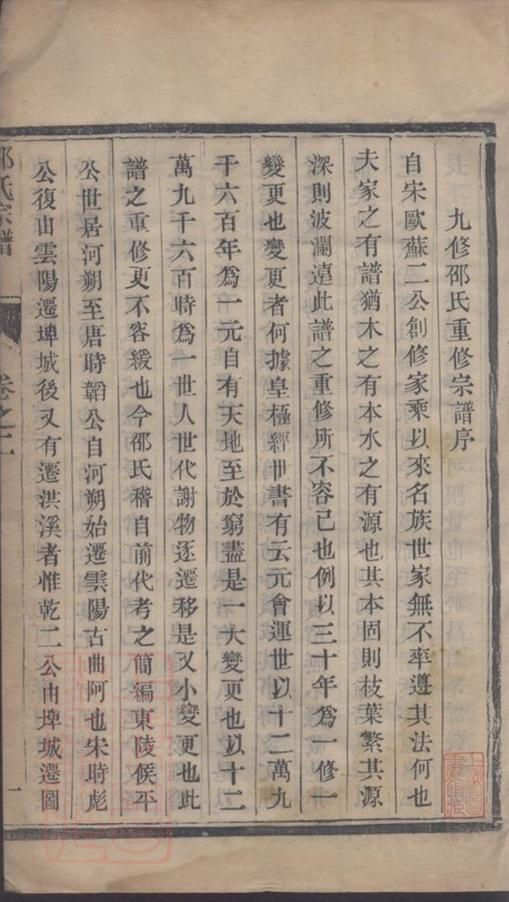 九修邵氏重修宗譜序
自宋歐蘇二公創修家乘以來名族世家無不率遵其法何也
夫家之有譜猶木之有本水之有源也其本固則枝葉繁其源
深則波瀾遠此譜之重修所不容已也例以三十年為一修一
變更也變更者何據皇極經世書有云元會運世以十二萬九
千六百年為一元自有天地至於窮盡是一大變更也以十二
萬九千六百時為一世人世代謝物逐遷移是又小變更也此
譜之重修更不容緩也今邵氏稽自前代考之簡編東陵侯平
公世居河朔至唐時韜公自河朔始遷雲陽古曲阿也宋時彪
公復由雲陽遷埤城後又有遷洪溪者惟乾二公由埤城遷圖
邵氏宗譜
卷之二
一